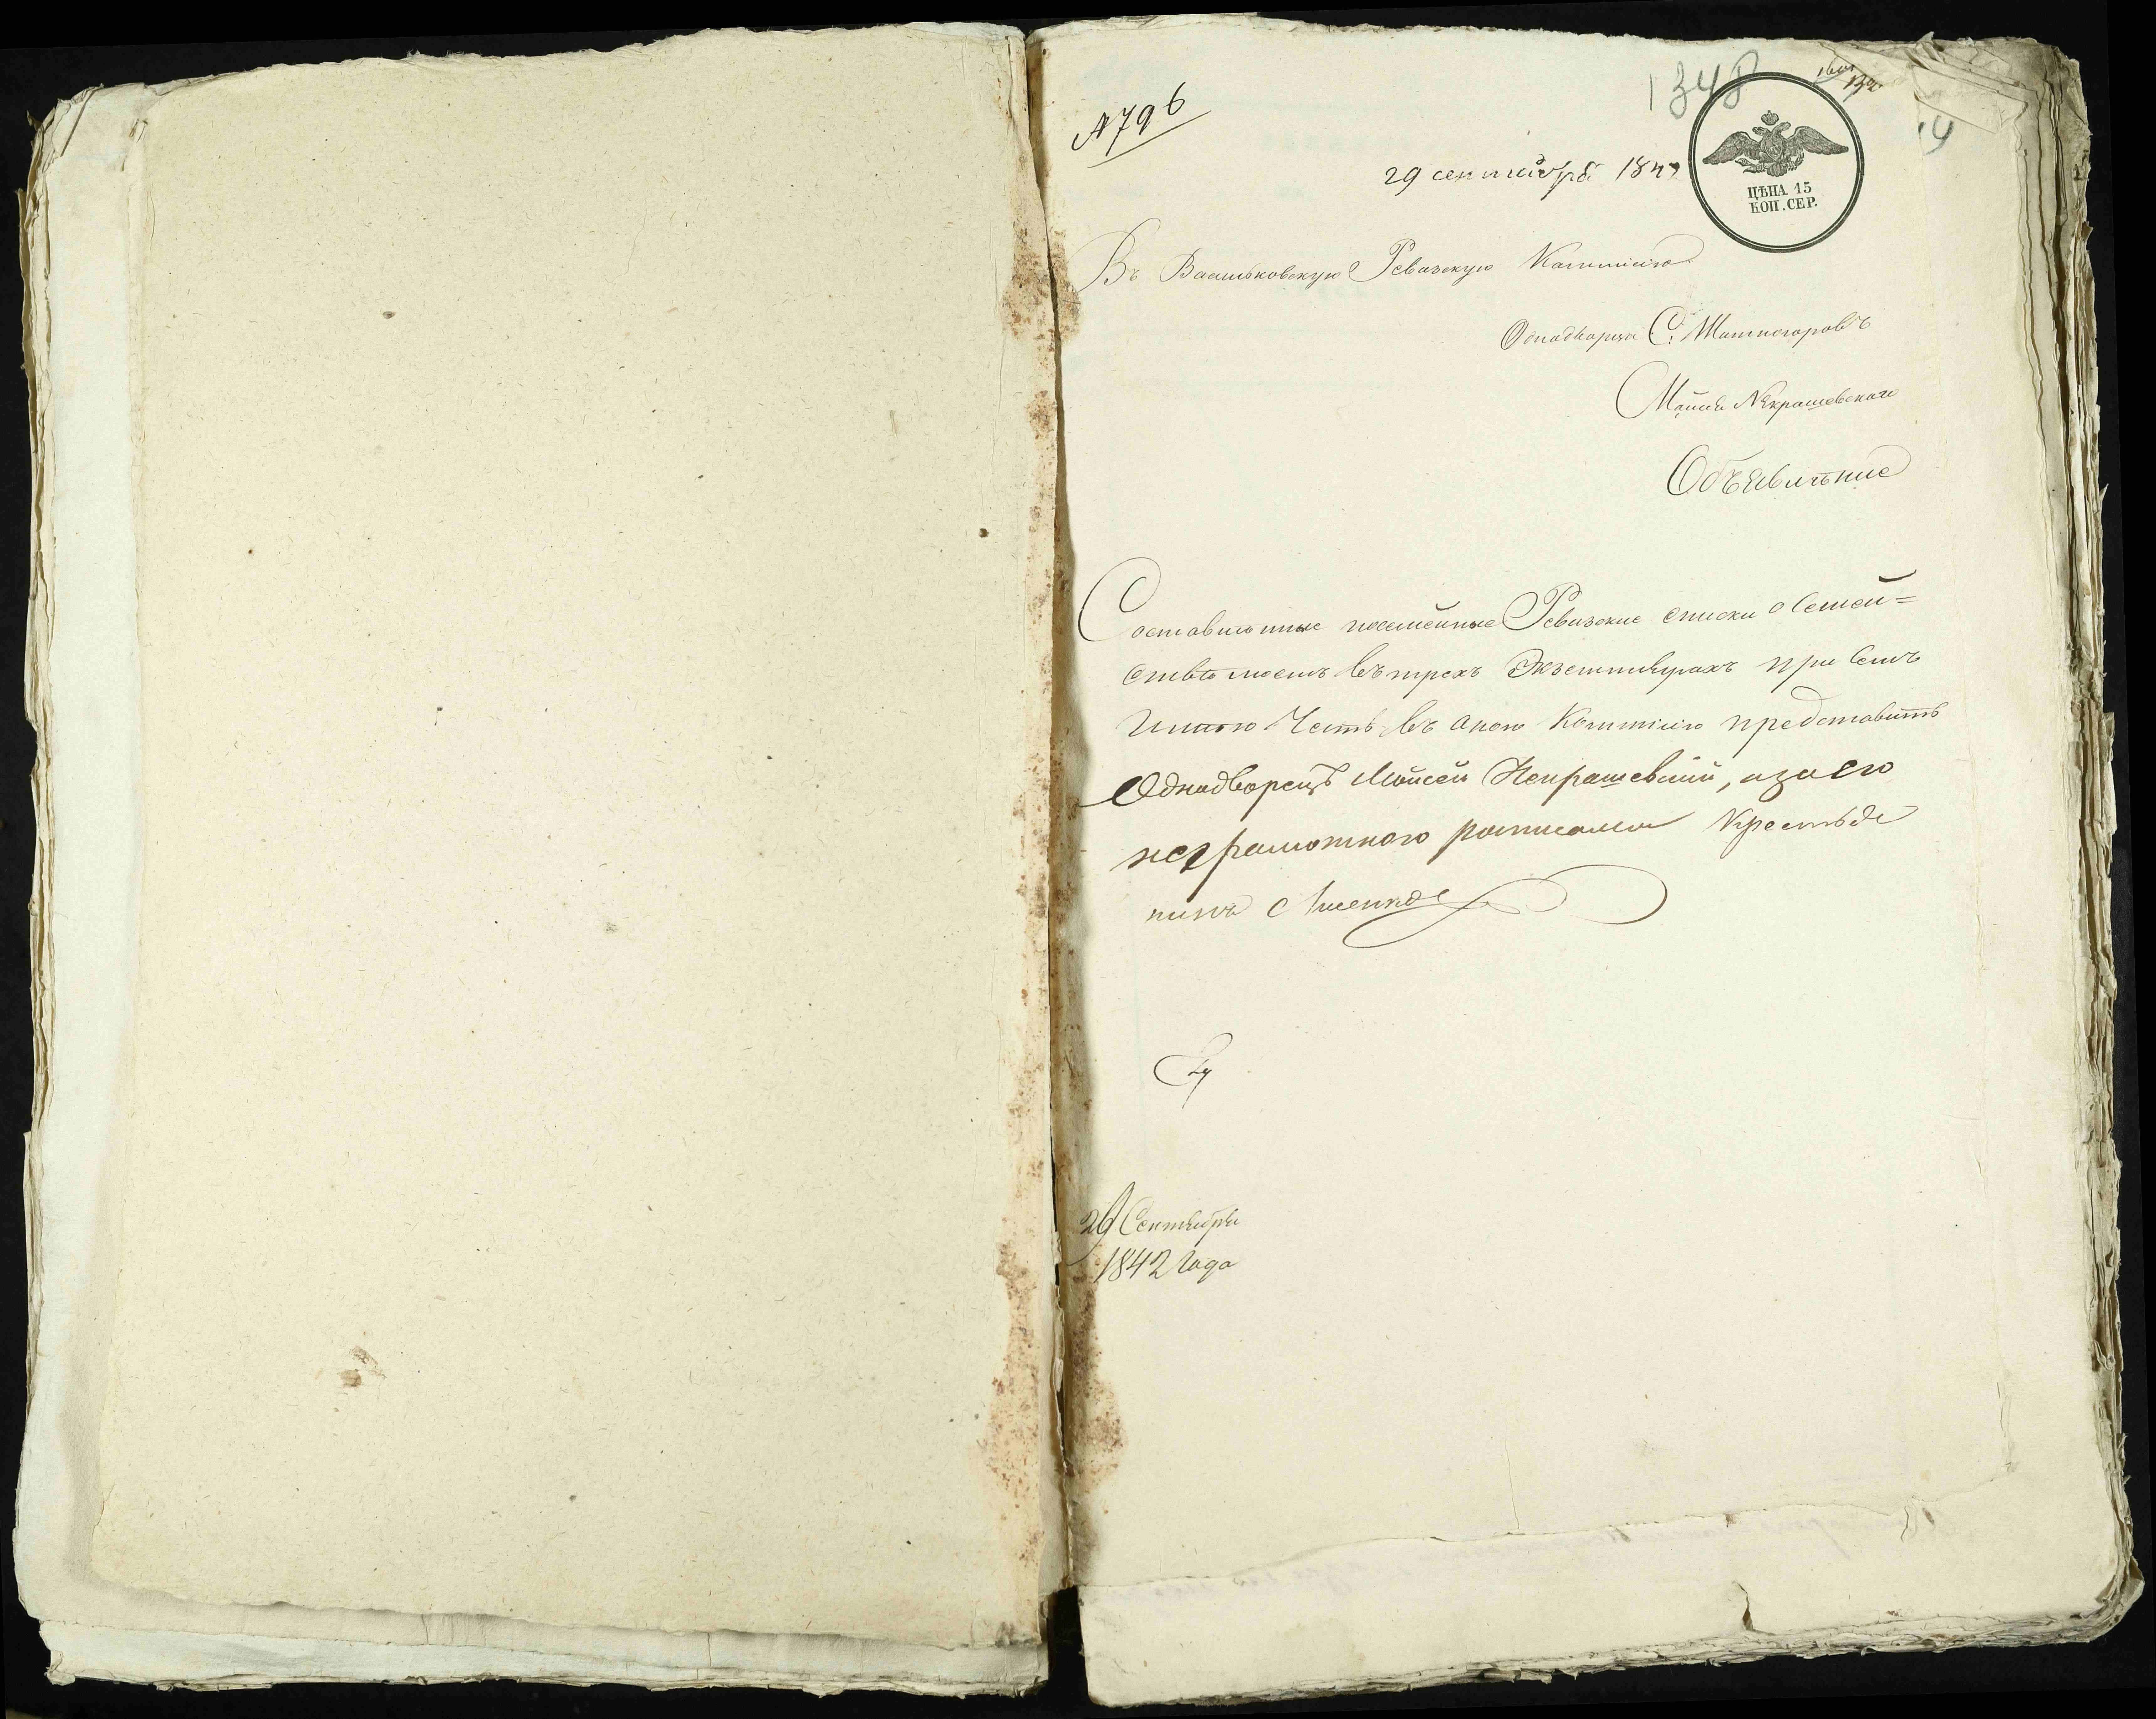 № 796
1348
29 сентября 1842
ЦѢНА 15
КОП. СЕР.
Въ Васильковскую Ревизскую Коммисію
Однодворца С. Житногоровъ
Мойсея Некрашевскаго
Объявленіе
Составленные посемейные Ревизские списки о Семей=
ствѣ моемъ въ трехъ Экземплярахъ при Семъ
Имѣю Честь въ оною Коммисію представить
Однодворецъ Мойсей Некрашевский, а за его
неграмотного росписался Крестья
нинъ
29 Сентября
1842 Года